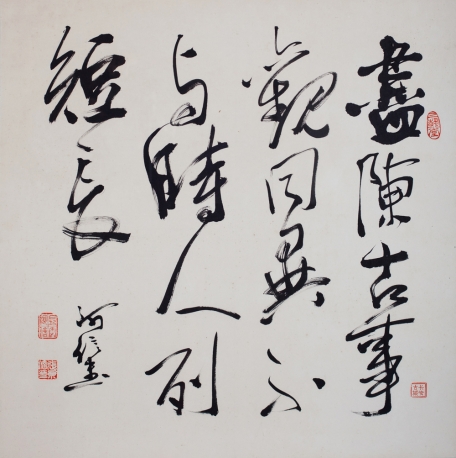 盡陳古事
觀同異不
与時人列
短長